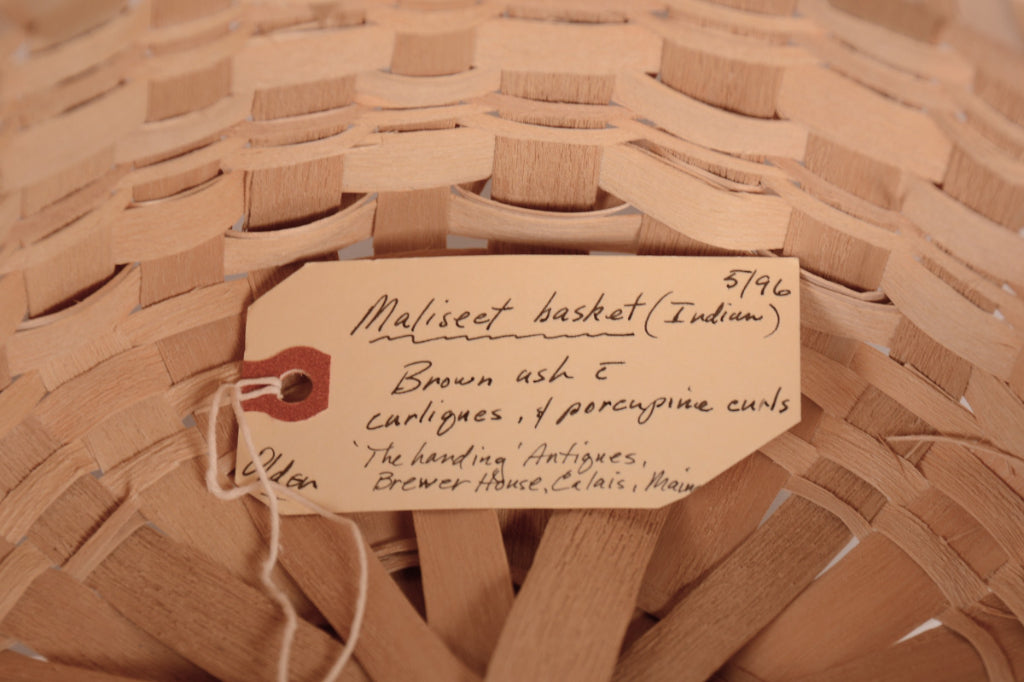 5/96
Maliseet basket (Indian)
Brown ash c̄
curliques, & porcupine curls
'The handing' Antiques,
Olden Brewer House, Calais, Main